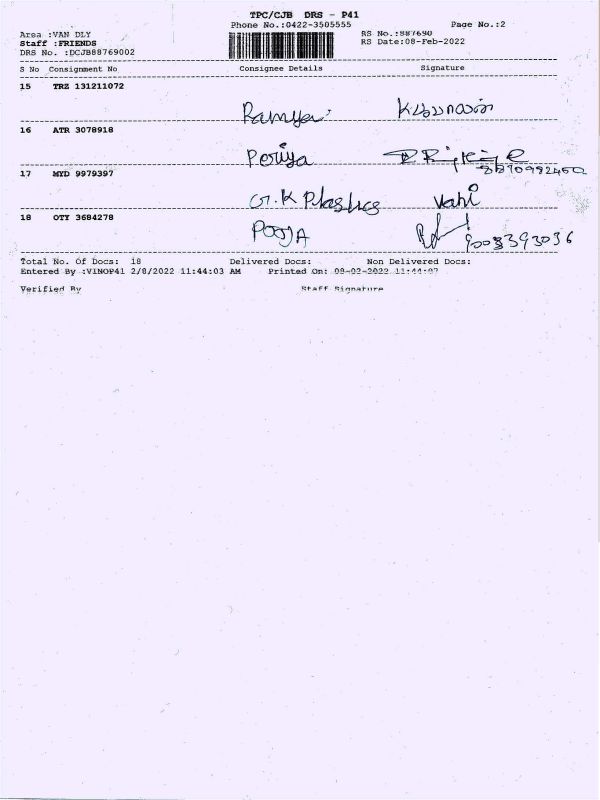 TPC/CJB DRS - P41
Phone No.:0422-3505555 Page No.:2
Area :VAN DLY RS No.:887690
Staff :FRIENDS RS Date:08-Feb-2022
DRS No. :DCJB88769002
S No Consignment No Consignee Details Signature
15 TRZ 131211072
Ramya
16 ATR 3078918
Periya
17 MYD 9979397
G.K Plastics Vahi
18 OTY 3684278
POOJA 9003393036
Total No. Of Docs: 18 Delivered Docs: Non Delivered Docs:
Entered By :VINOP41 2/8/2022 11:44:03 AM Printed On: 08-02-2022 11:44:07
Verified By Staff Signature